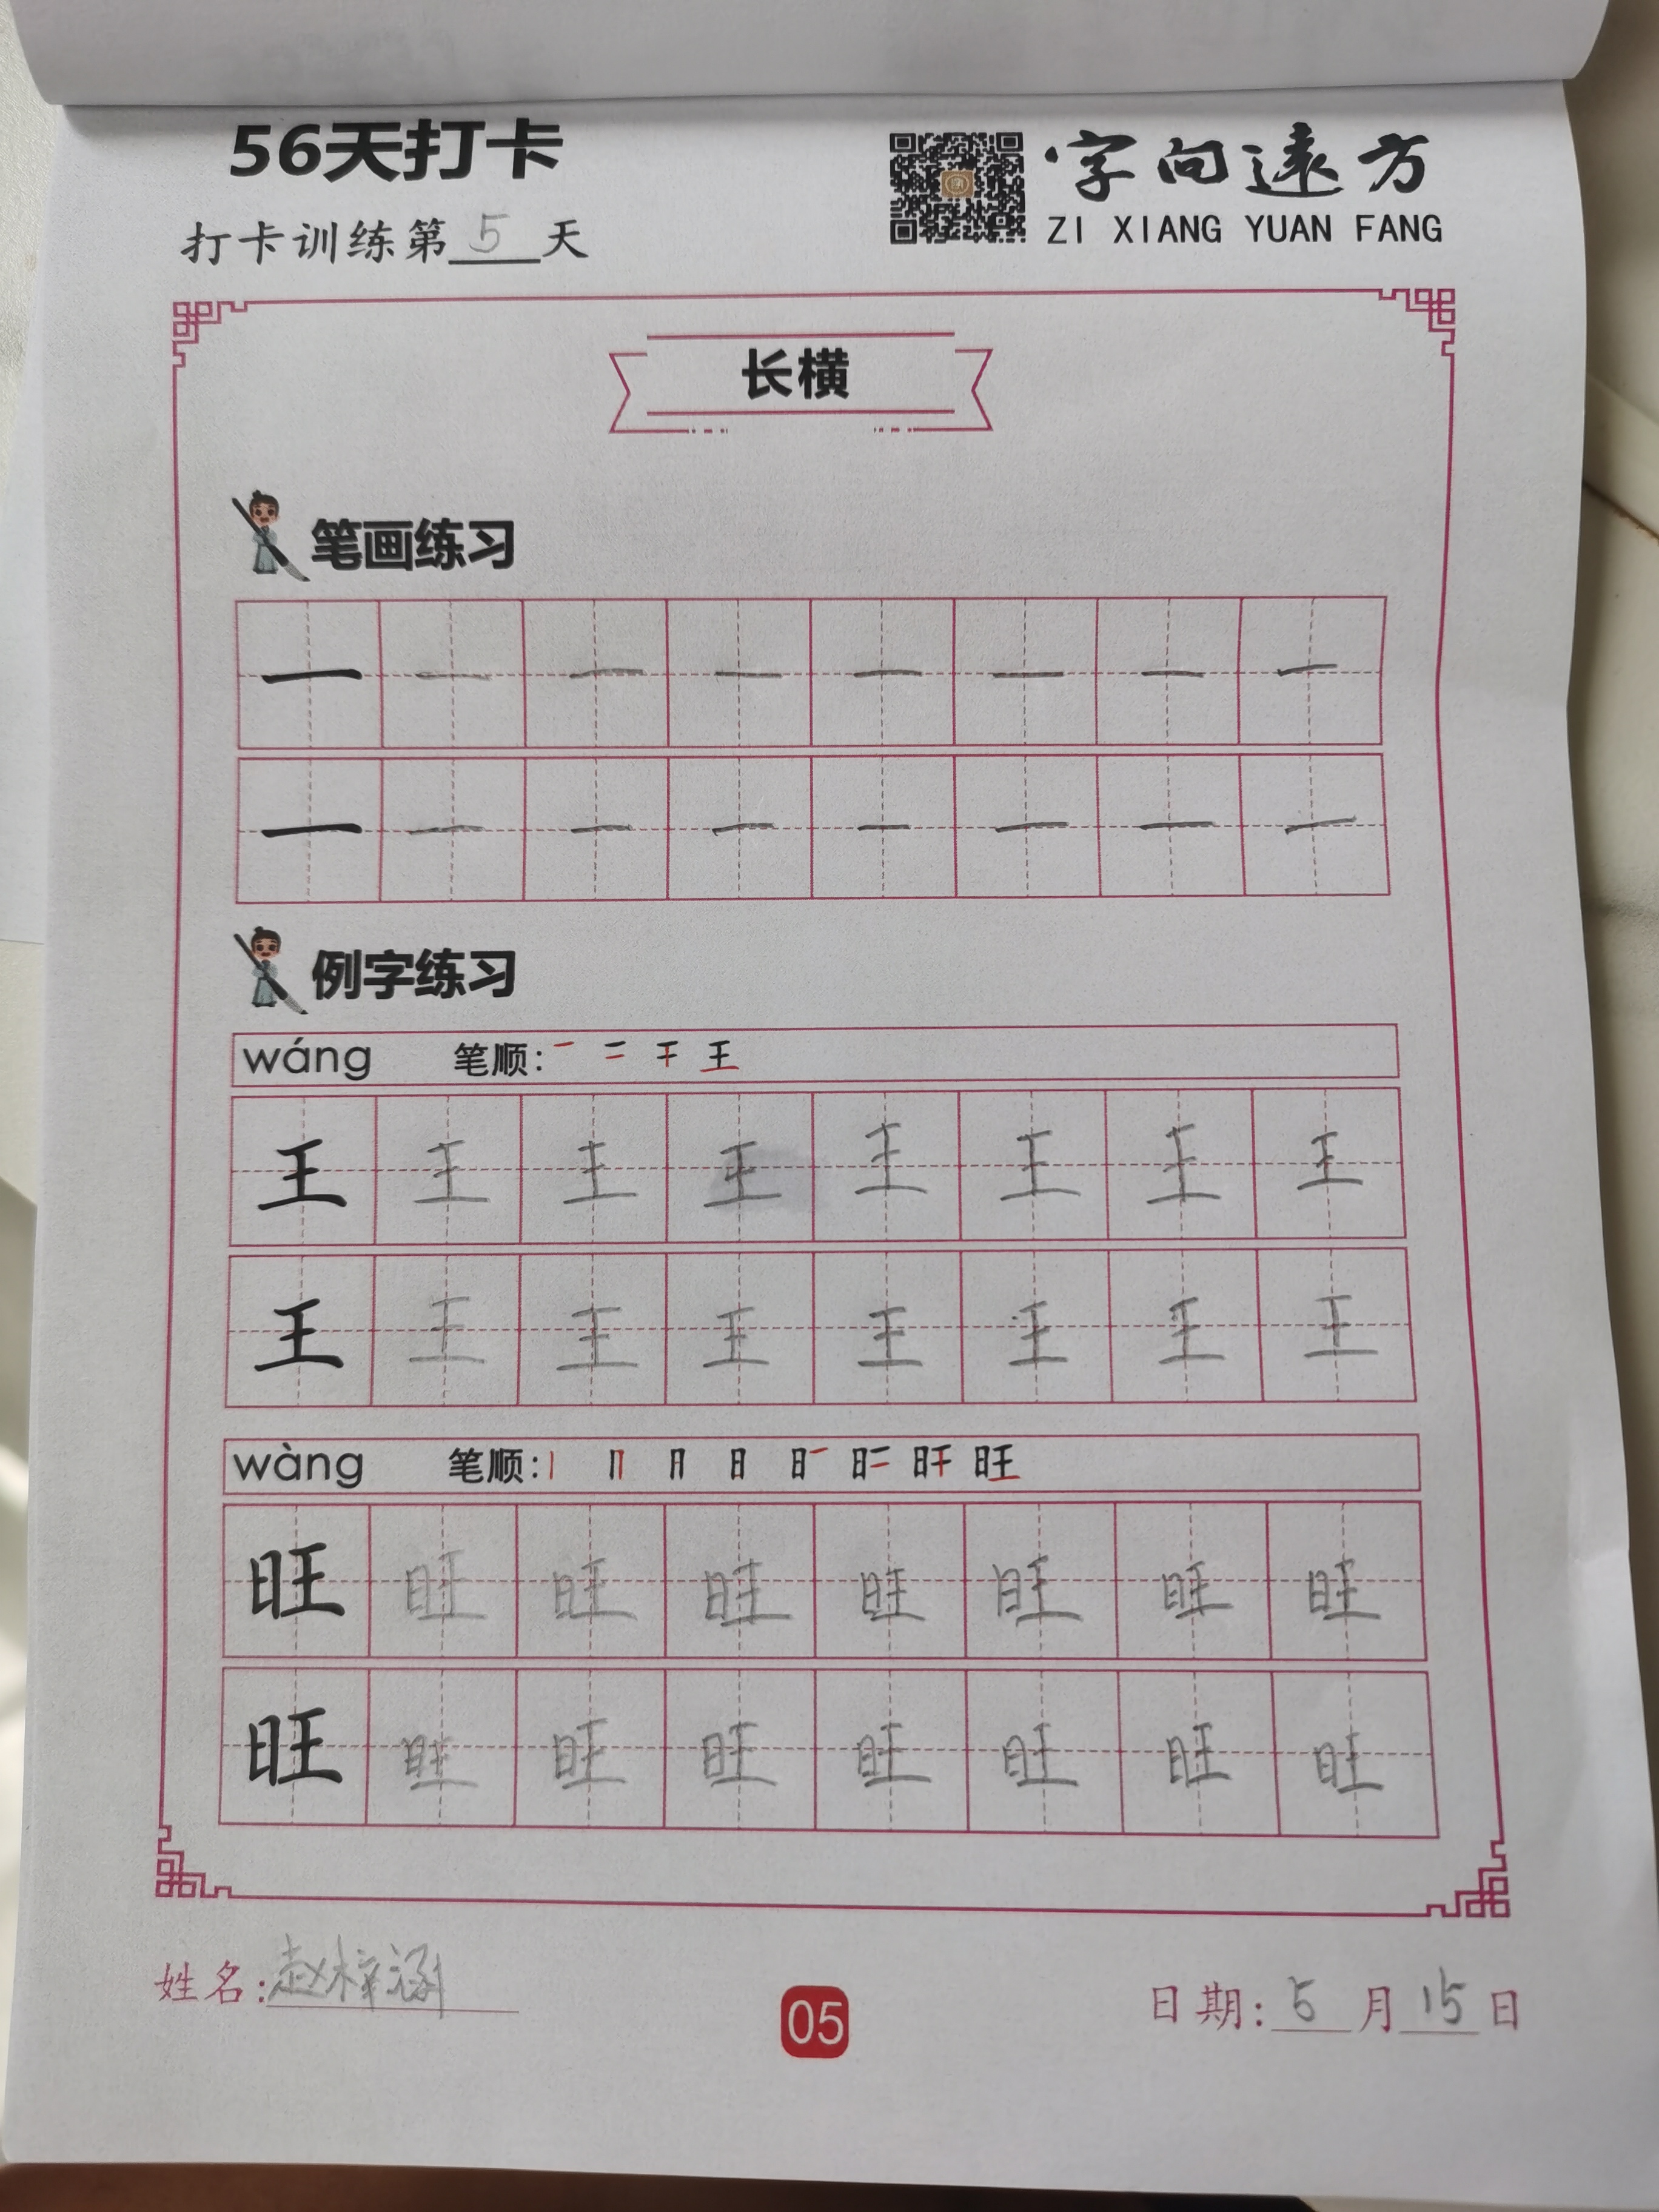 56天打卡
字向遠方
ZI XIANG YUAN FANG
打卡训练第 5 天
长横
笔画练习
一 一 一 一 一 一 一 一
一 一 一 一 一 一 一 一
例字练习
wáng 笔顺: 一 二 干 王
王 王 王 王 王 王 王 王
王 王 王 王 王 王 王 王
wàng 笔顺: 丨 冂 月 日 旺
旺 旺 旺 旺 旺 旺 旺 旺
旺 旺 旺 旺 旺 旺 旺 旺
姓名: 赵梓涵
05
日期: 5 月 15 日